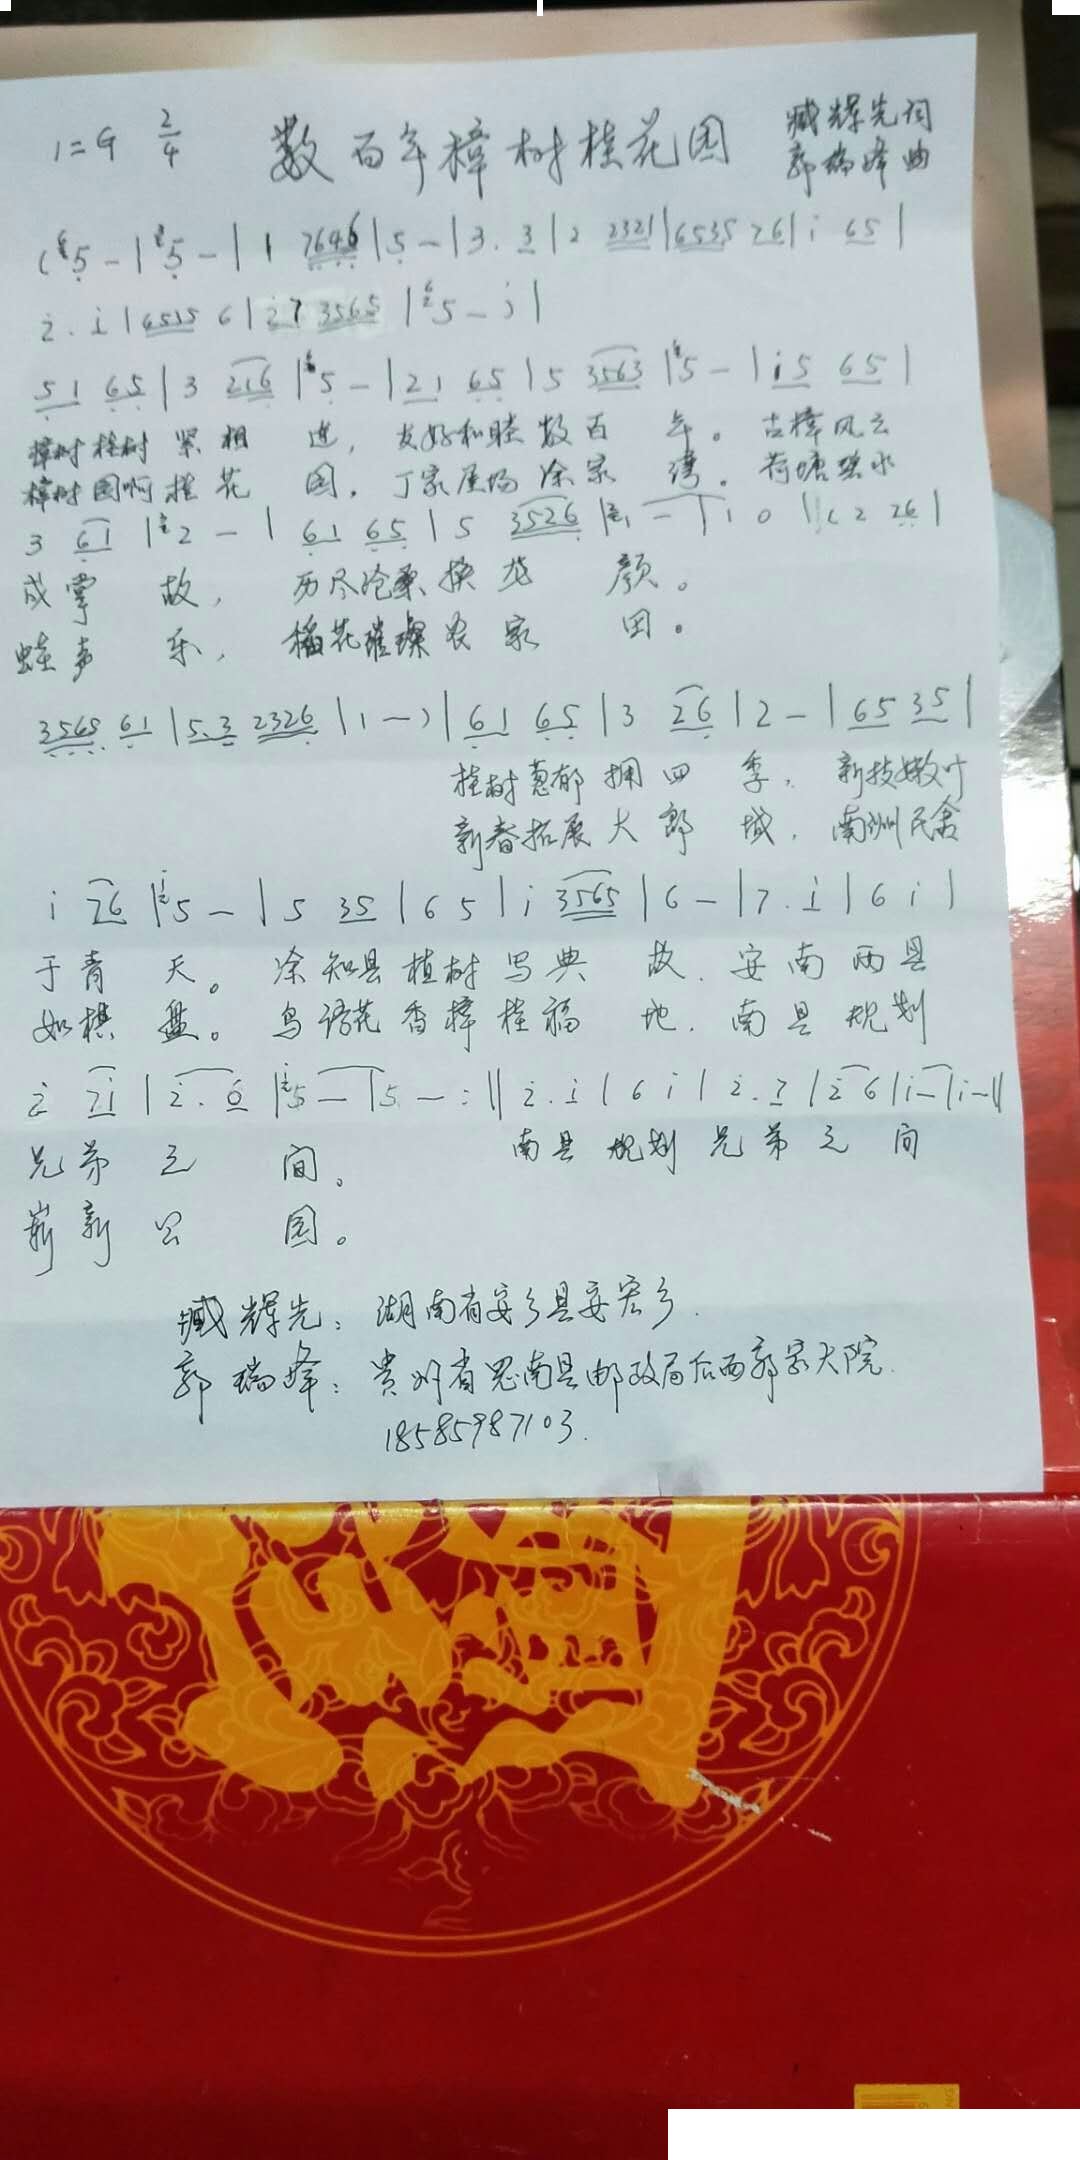 1=G 2/4 数百年樟树桂花园 臧辉先词
郭瑞峰曲
(5 - | 5 - | 1 7646 | 5 - | 3. 3 | 2 2321 | 6535 26 | i 65 |
2. i | 6535 6 | 27 3565 | 5 - ) |
51 65 | 3 216 | 5 - | 21 65 | 5 3563 | 5 - | i5 65 |
樟树桂树紧相连,友好和睦数百年。古樟风云
樟树园啊桂花园,丁家屋场涂家湾。荷塘碧水
3 61 | 2 - | 61 65 | 5 3526 | 1 - | 1 0 || (2 26 |
成掌故,历尽沧桑换龙颜。
蛙声乐,稻花璀璨农家田。
3565 61 | 5.3 2326 | 1 - ) | 61 65 | 3 26 | 2 - | 65 35 |
桂树葱郁拥四季,新枝嫩叶
新春拓展大郡城,南洲民舍
i 76 | 5 - | 5 35 | 6 5 | i 3565 | 6 - | 7. i | 6 i |
于青天。涂知县植树写典故,安南两县
如棋盘。鸟语花香樟桂福地,南县规划
2 7i | 2. 6 | 5 - | 5 - :|| 2. i | 6 i | 2. 7 | 2 6 | i - | i - ||
兄弟之间。 南县规划兄弟之间
崭新公园。
臧辉先:湖南省安乡县安宏乡.
郭瑞峰:贵州省思南县邮政局后西郭家大院.
18585987103.